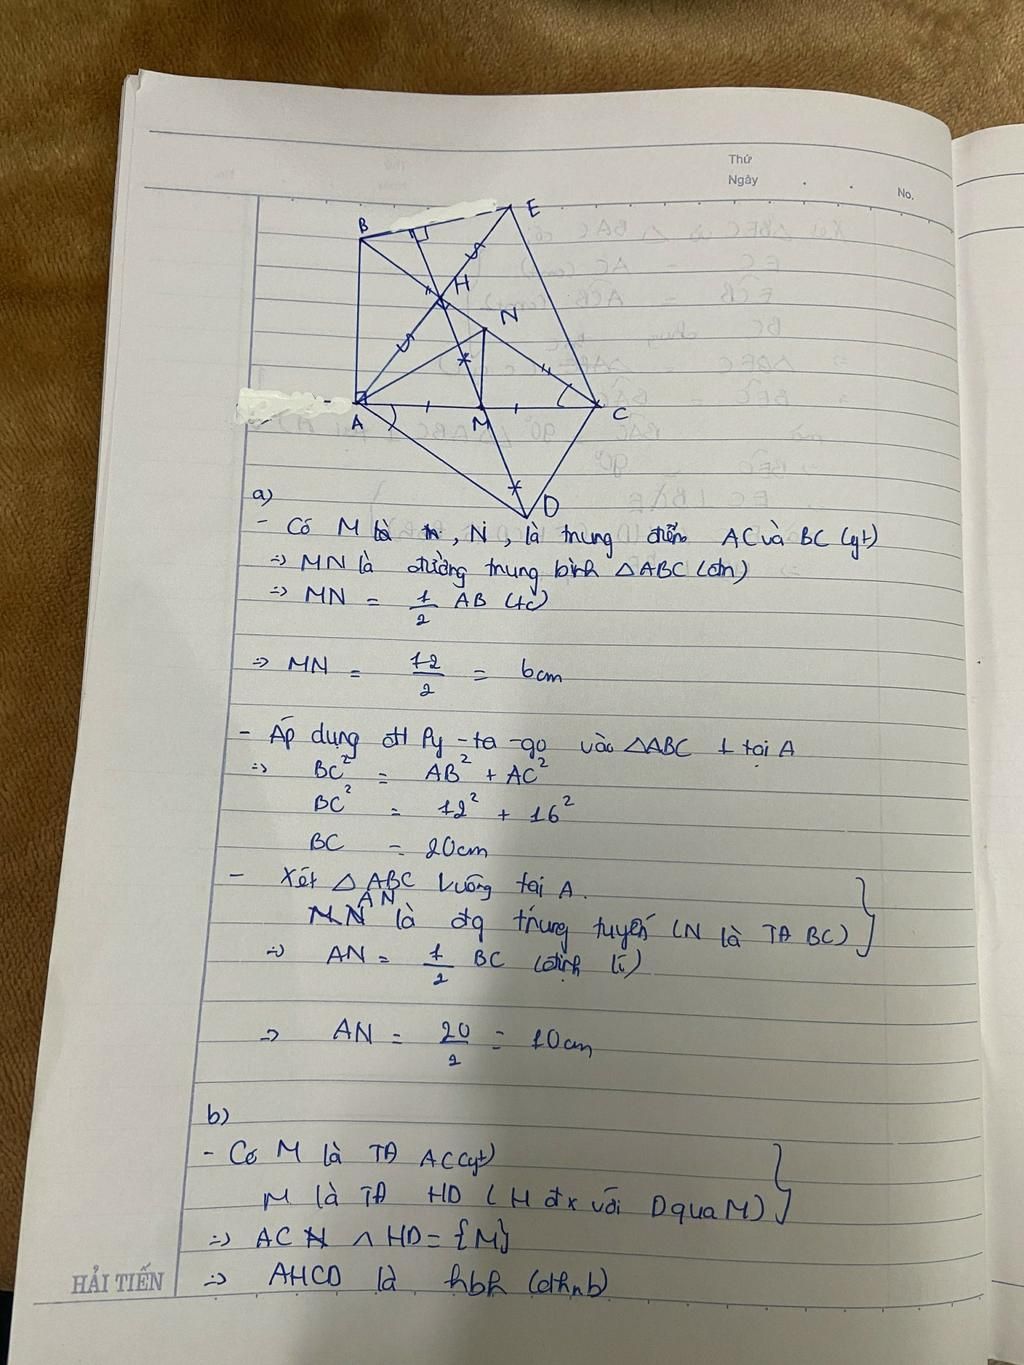 Thứ
Ngày
No.
B
E
H
N
A
M
C
D
a)
- Có M là , N, là trung điểm AC và BC (gt)
=> MN là đường trung bình △ABC (đn)
=> MN = 1/2 AB (tc)
=> MN = 12/2 = 6cm
- Áp dụng đl Py-ta-go vào △ABC ⊥ tại A
=> BC² = AB² + AC²
BC² = 12² + 16²
BC = 20cm
- Xét △ABC vuông tại A.
AN là đg trung tuyến (N là TĐ BC) }
=> AN = 1/2 BC (định lí)
=> AN = 20/2 = 10cm
b)
- Có M là TĐ AC (gt)
M là TĐ HD (H đx với D qua M) }
=> AC ∩ HD = {M}
=> AHCD là hbh (dhnb)
HẢI TIẾN